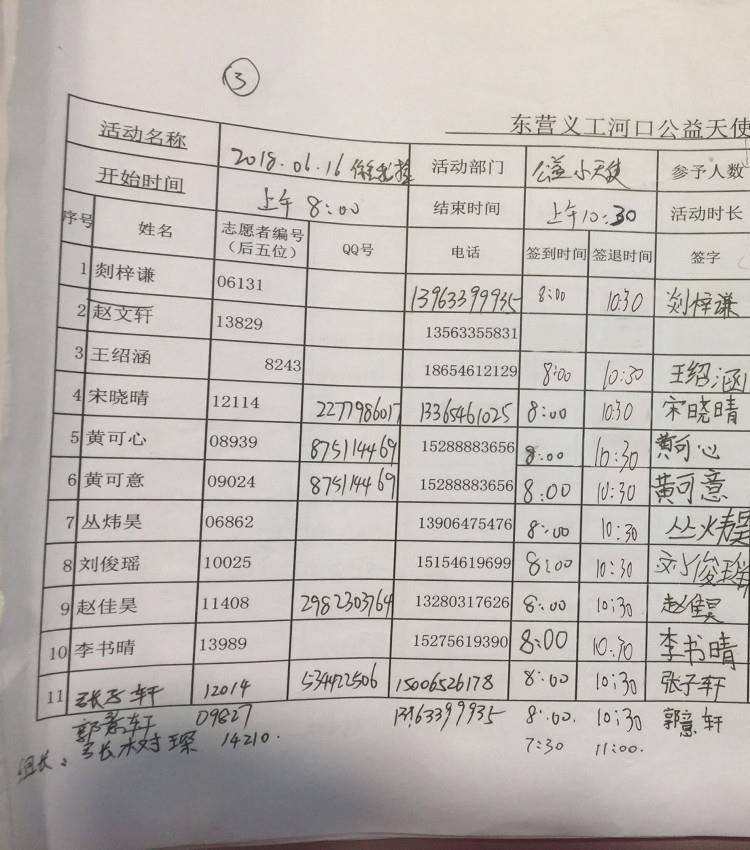 ③
东营义工河口公益天使
活动名称 2018.06.16 活动部门 公益小天使 参予人数
开始时间 上午 8:00 结束时间 上午10:30 活动时长
序号 姓名 志愿者编号（后五位） QQ号 电话 签到时间 签退时间 签字
1 剡梓谦 06131 13963399935 8:00 10:30 剡梓谦
2 赵文轩 13829 13563355831
3 王绍涵 8243 18654612129 8:00 10:30 王绍涵
4 宋晓晴 12114 2277986017 13365461025 8:00 10:30 宋晓晴
5 黄可心 08939 875114469 15288883656 8:00 10:30 黄可心
6 黄可意 09024 875114469 15288883656 8:00 10:30 黄可意
7 丛炜昊 06862 13906475476 8:00 10:30 丛炜昊
8 刘俊瑶 10025 15154619699 8:00 10:30 刘俊瑶
9 赵佳昊 11408 2982303764 13280317626 8:00 10:30 赵佳昊
10 李书晴 13989 15275619390 8:00 10:30 李书晴
11 张子轩 12014 534422506 15006526178 8:00 10:30 张子轩
郭意轩 09827 13963399935 8:00. 10:30 郭意轩
组长、张树琛 14210. 7:30 11:00.